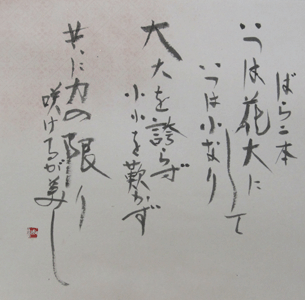 ばら二本
一つは花大にして
一つは小なり
大大を誇らず
小小を歎かず
共に力の限り
咲けるが美し